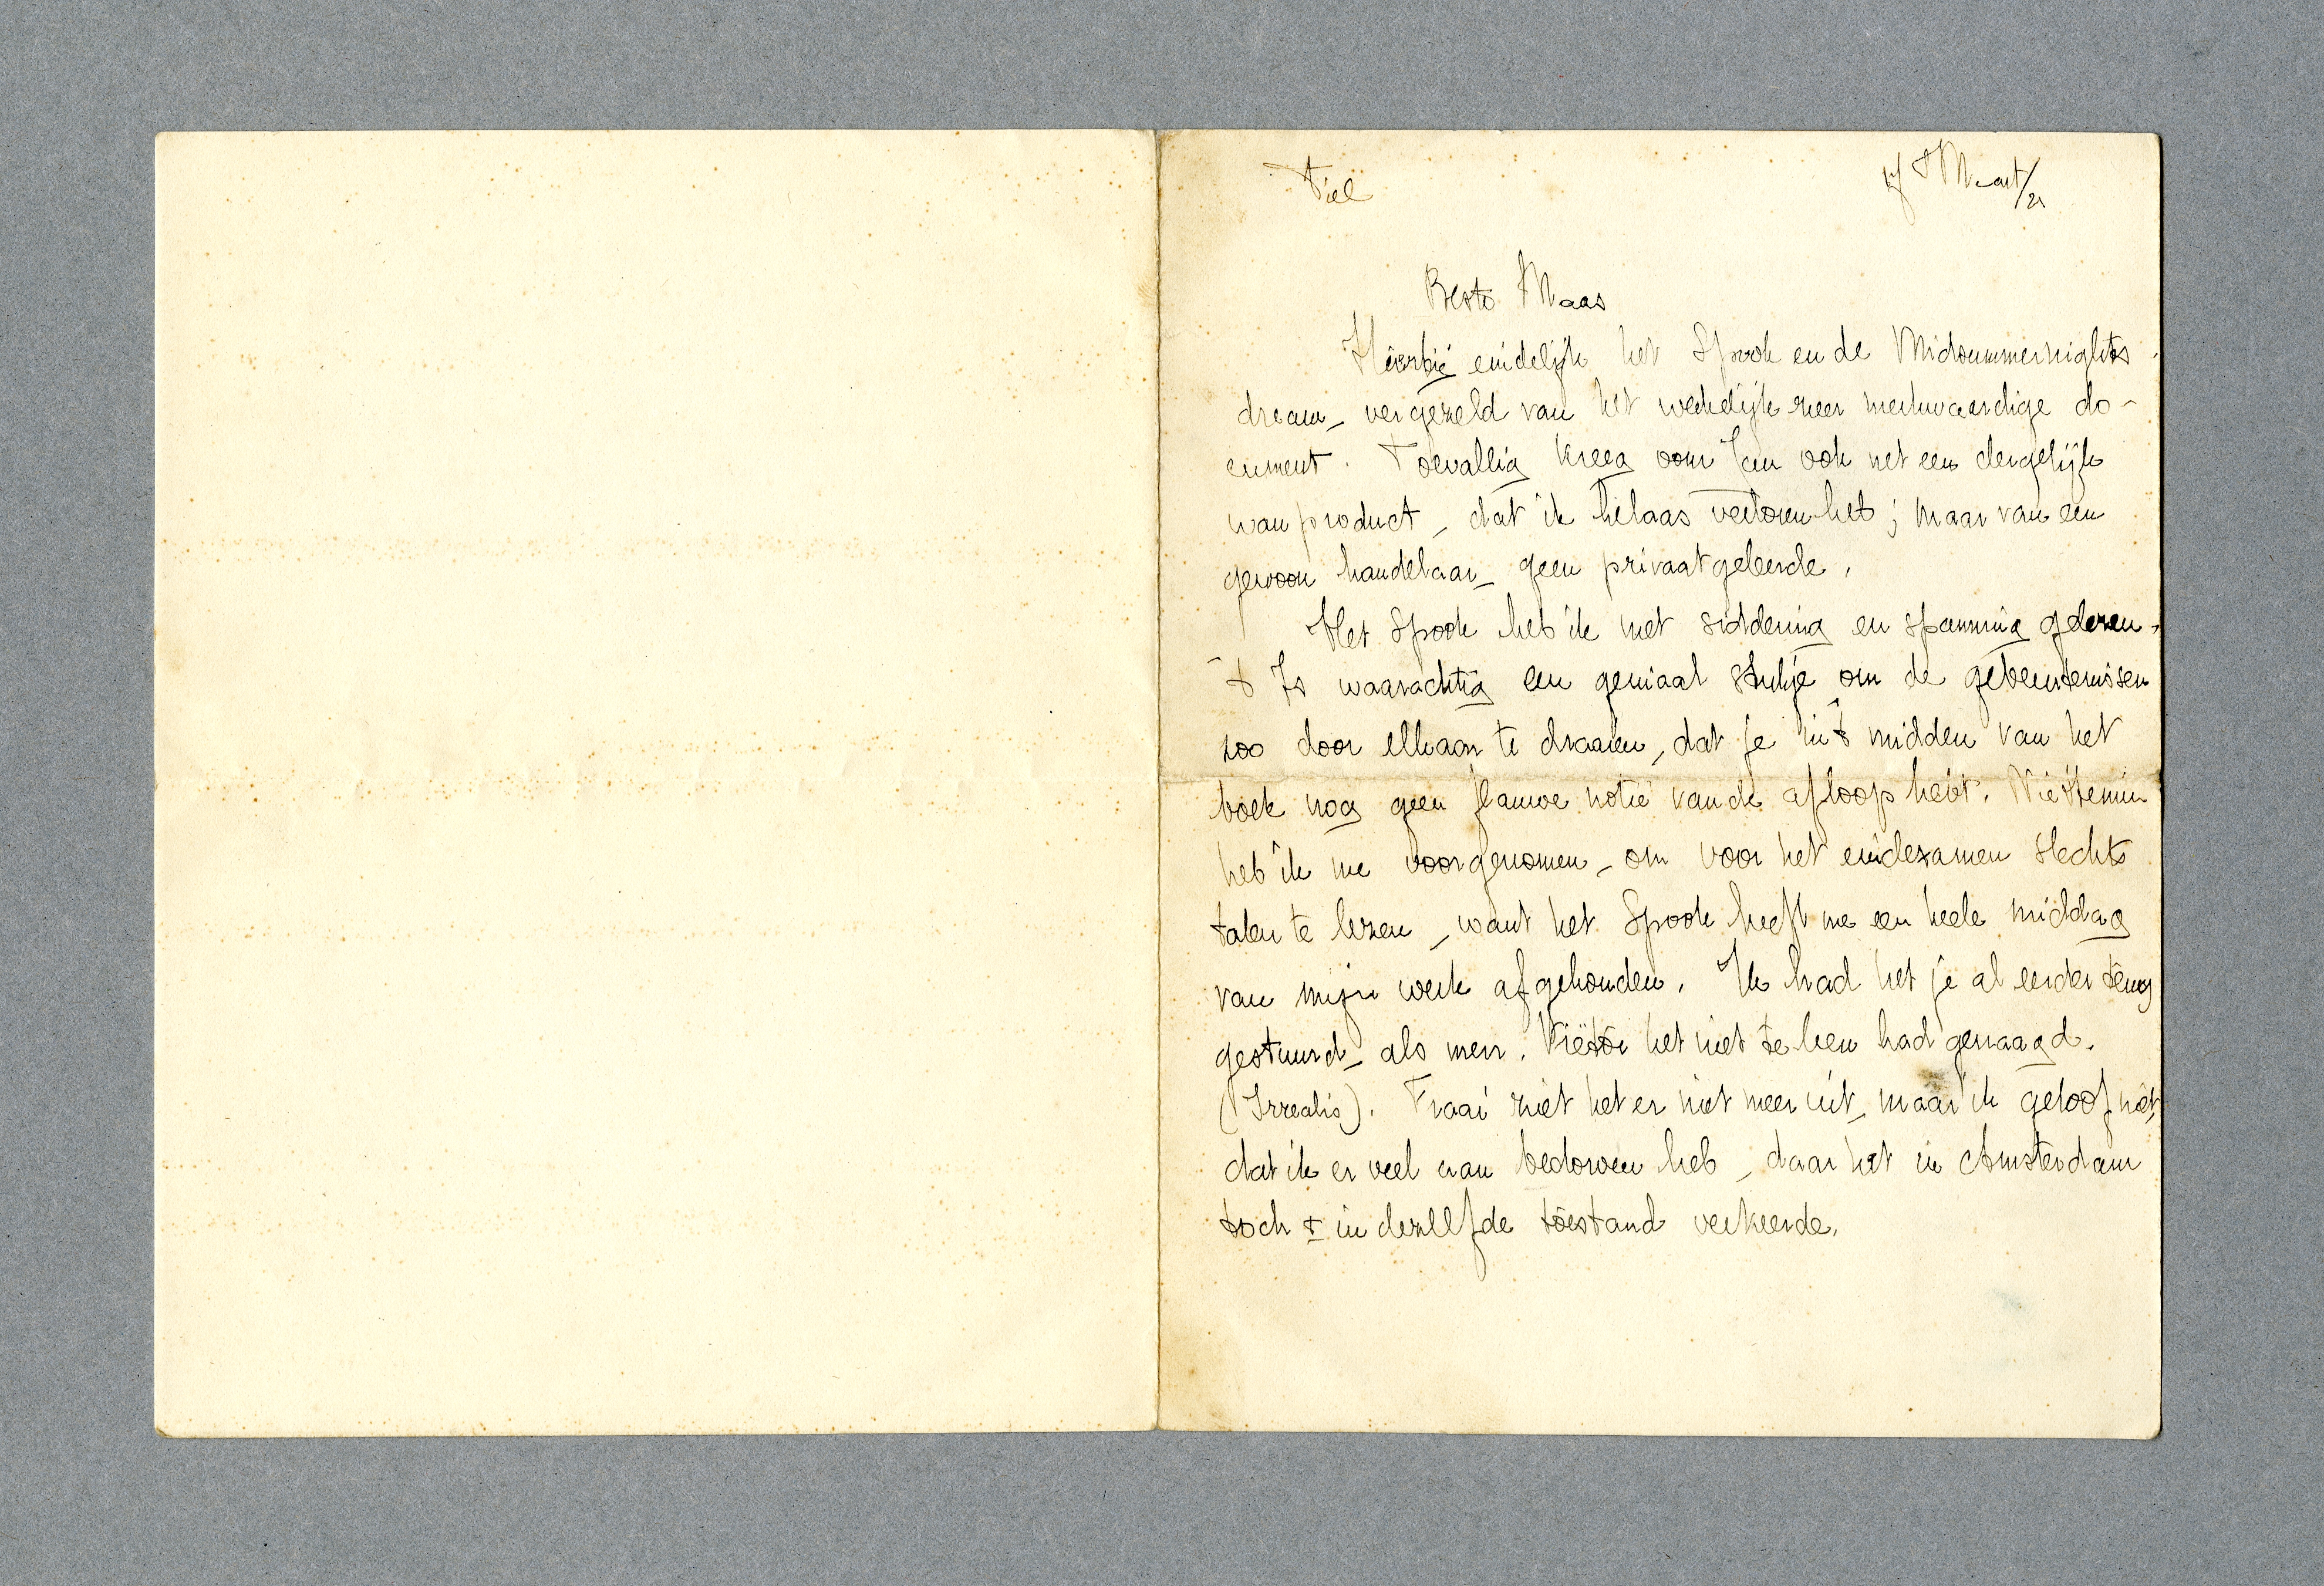 Tiel Maart/21
Beste Maas
Hierbij eindelijk het Spook en de Midsummernights
dream, vergezeld van het werkelijk zeer merkwaardige do-
cument. Toevallig kreeg oom Jan ook net een dergelijk
wanproduct, dat ik helaas verloren heb; maar van een
gewoon handelaar, geen privaatgeleerde.
Het Spook heb ik met siddering en spanning gelezen.
't Is waarachtig een geniaal stukje om de gebeurtenissen
zoo door elkaar te draaien, dat je in 't midden van het
boek nog geen flauwe notie van de afloop hebt. Niettemin
heb ik me voorgenomen, om voor het eindexamen slechts
talen te lezen, want het Spook heeft me een heele middag
van mijn werk afgehouden. Ik had het je al eerder terug
gestuurd, als mevr. het niet te leen had gevraagd.
(Irrealis). Fraai ziet het er niet meer uit, maar ik geloof niet,
dat ik er veel aan bedorven heb, daar het in Amsterdam
toch ± in dezelfde toestand verkeerde.